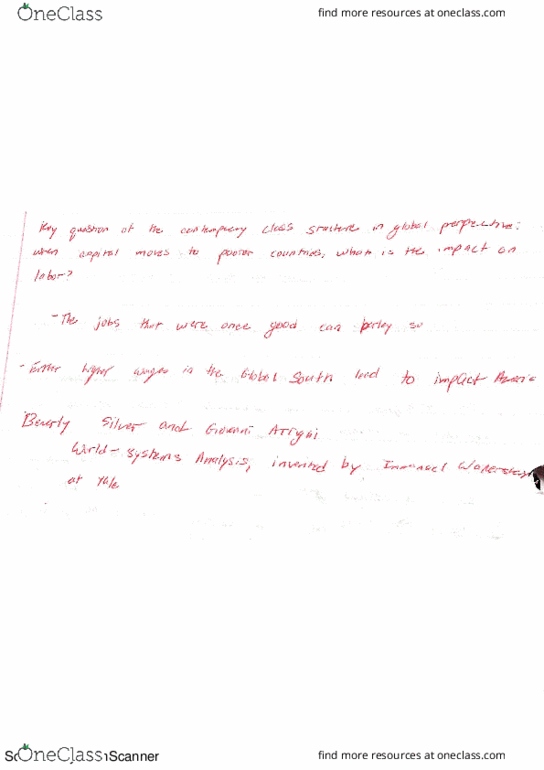 OneClass
find more resources at oneclass.com
Key question of the contemporary class structure in global perspective:
when capital moves to poorer countries, what is the impact on
labor?
- The jobs that were once good can so
- higher wages in the Global South lead to impact America
Beverly Silver and Giovanni Arrighi
World-Systems Analysis, invented by Immanuel Wallerstein
at Yale
OneClass Scanner
find more resources at oneclass.com